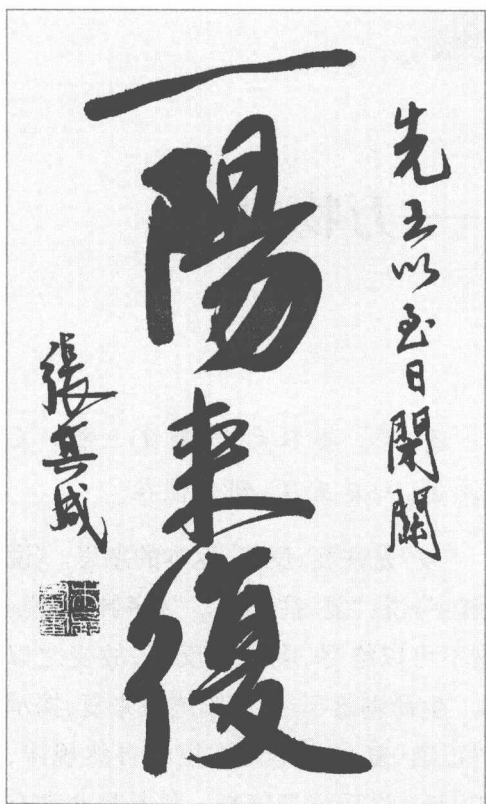 先王以至日閉關
一陽來復
張其成